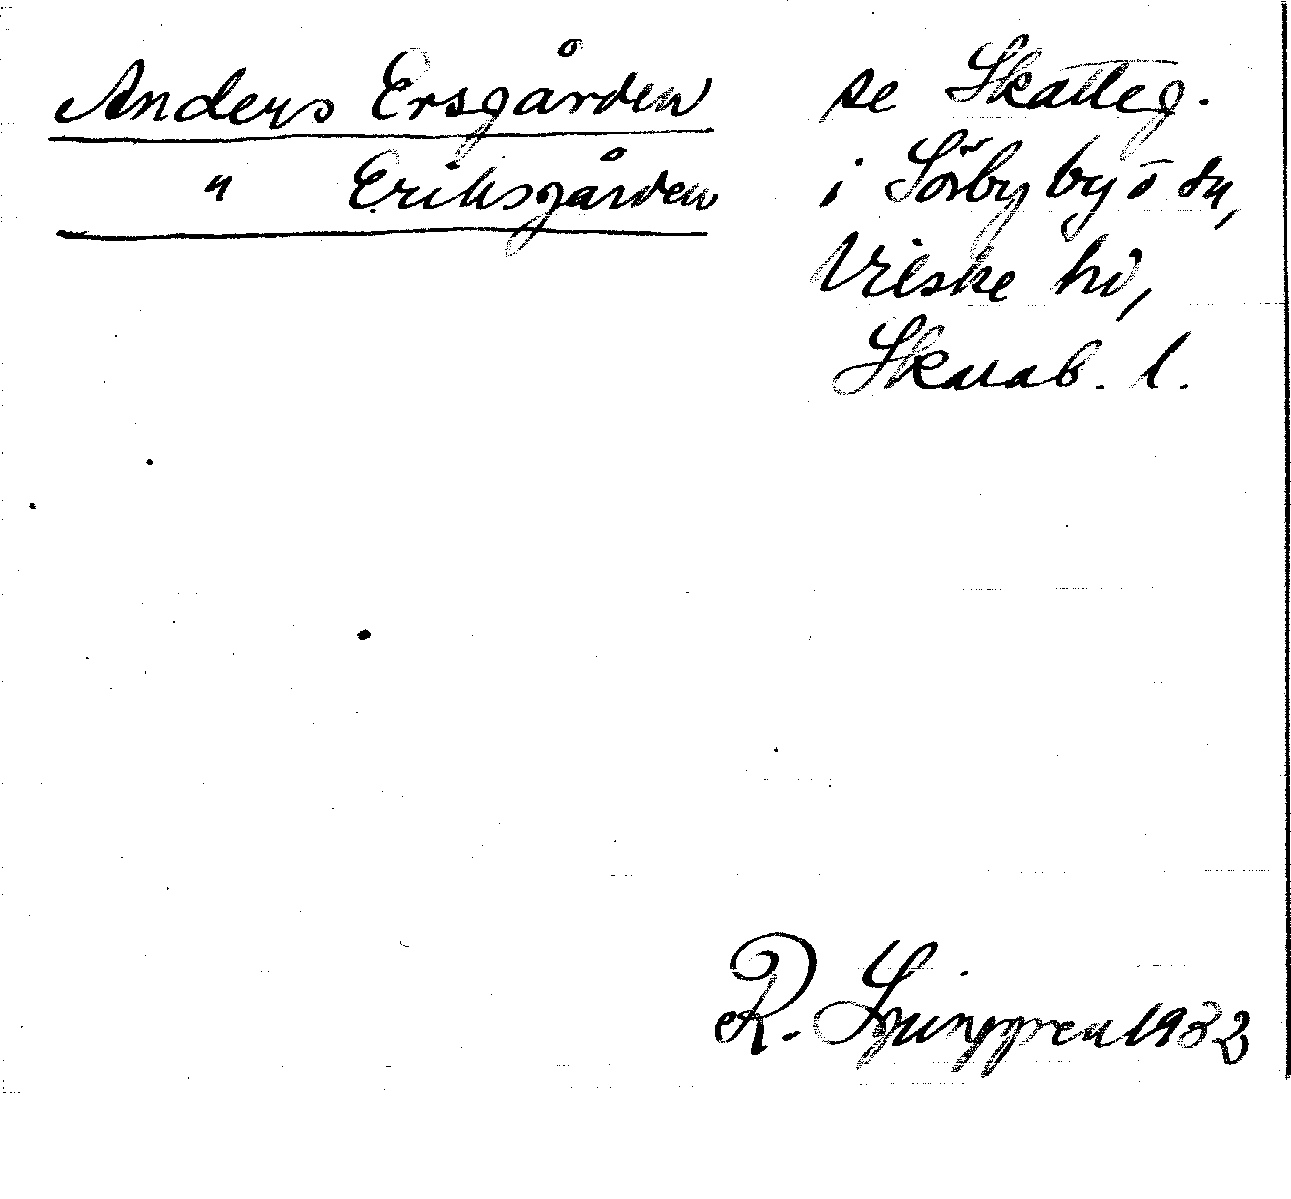 Anders Ersgården se Skatteg.
" Eriksgården i Sörby by o sn,
Vilske hd,
Skarab. l.
R. Ljunggren 1932